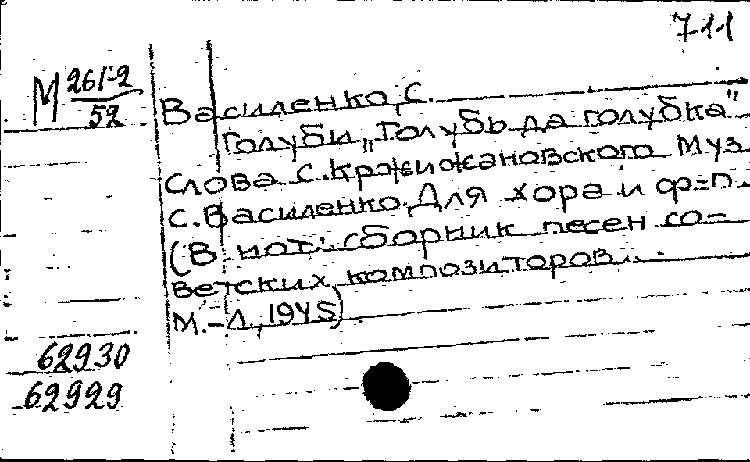 7-11
М 261-2
52
Василенко, С.
Голуби „Голубь да голубка"
Слова С. Кржижановского Муз.
С. Василенко. Для хора и ф=п.
(В нот: сборник песен со-
ветских композиторов...
М.-Л., 1945)
62930
62929